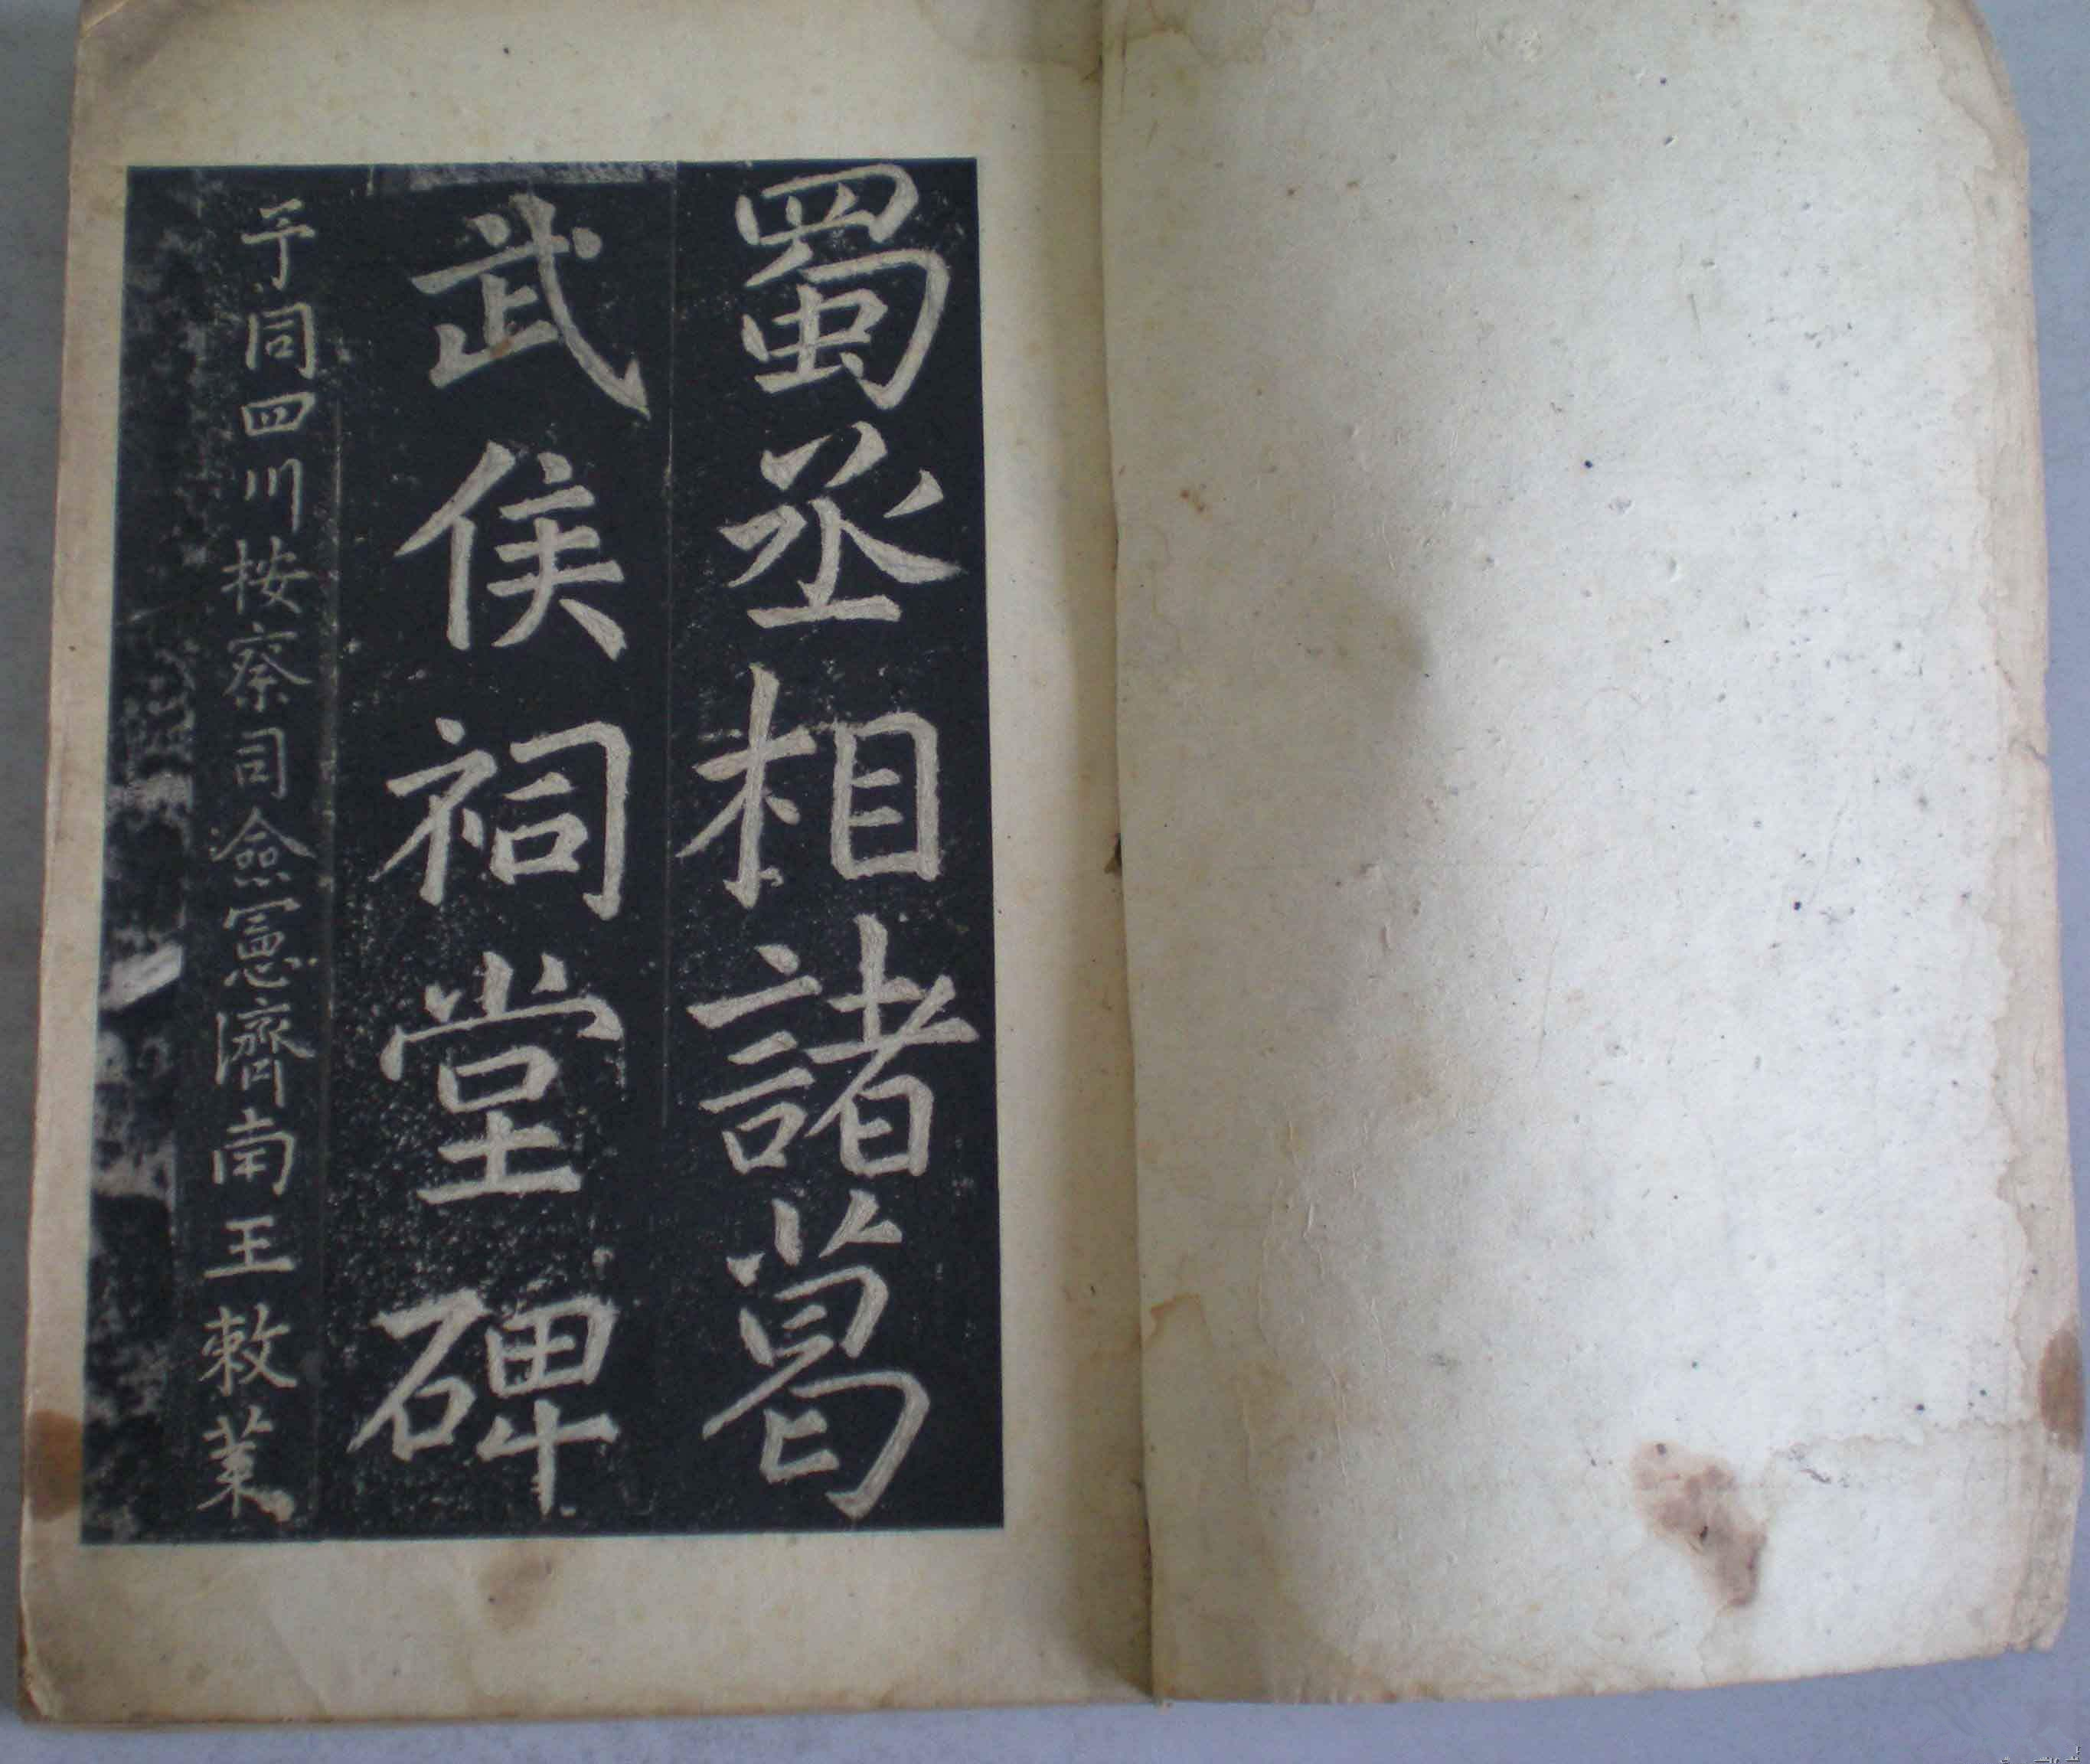 蜀丞相諸葛
武侯祠堂碑
予同四川按察司僉憲濟南王敕葉